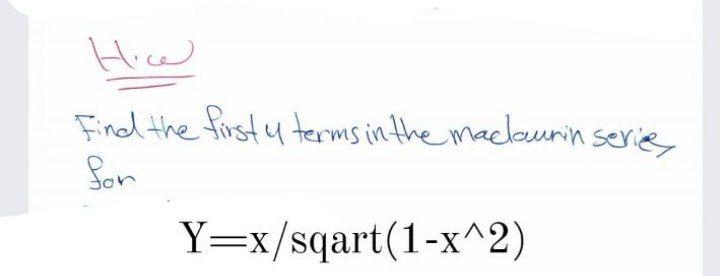 H.w
Find the first 4 terms in the maclaurin series
for
Y=x/sqart(1-x^2)